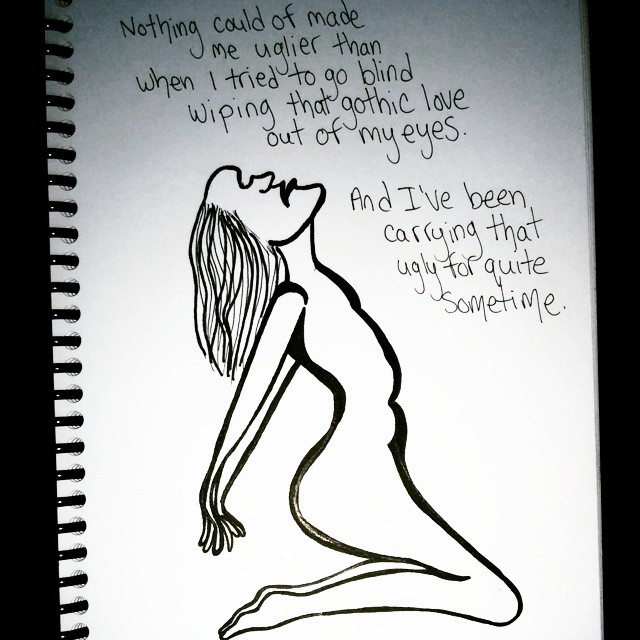 Nothing could of made
me uglier than
when I tried to go blind
wiping that gothic love
out of my eyes.
And I've been
carrying that
ugly for quite
sometime.